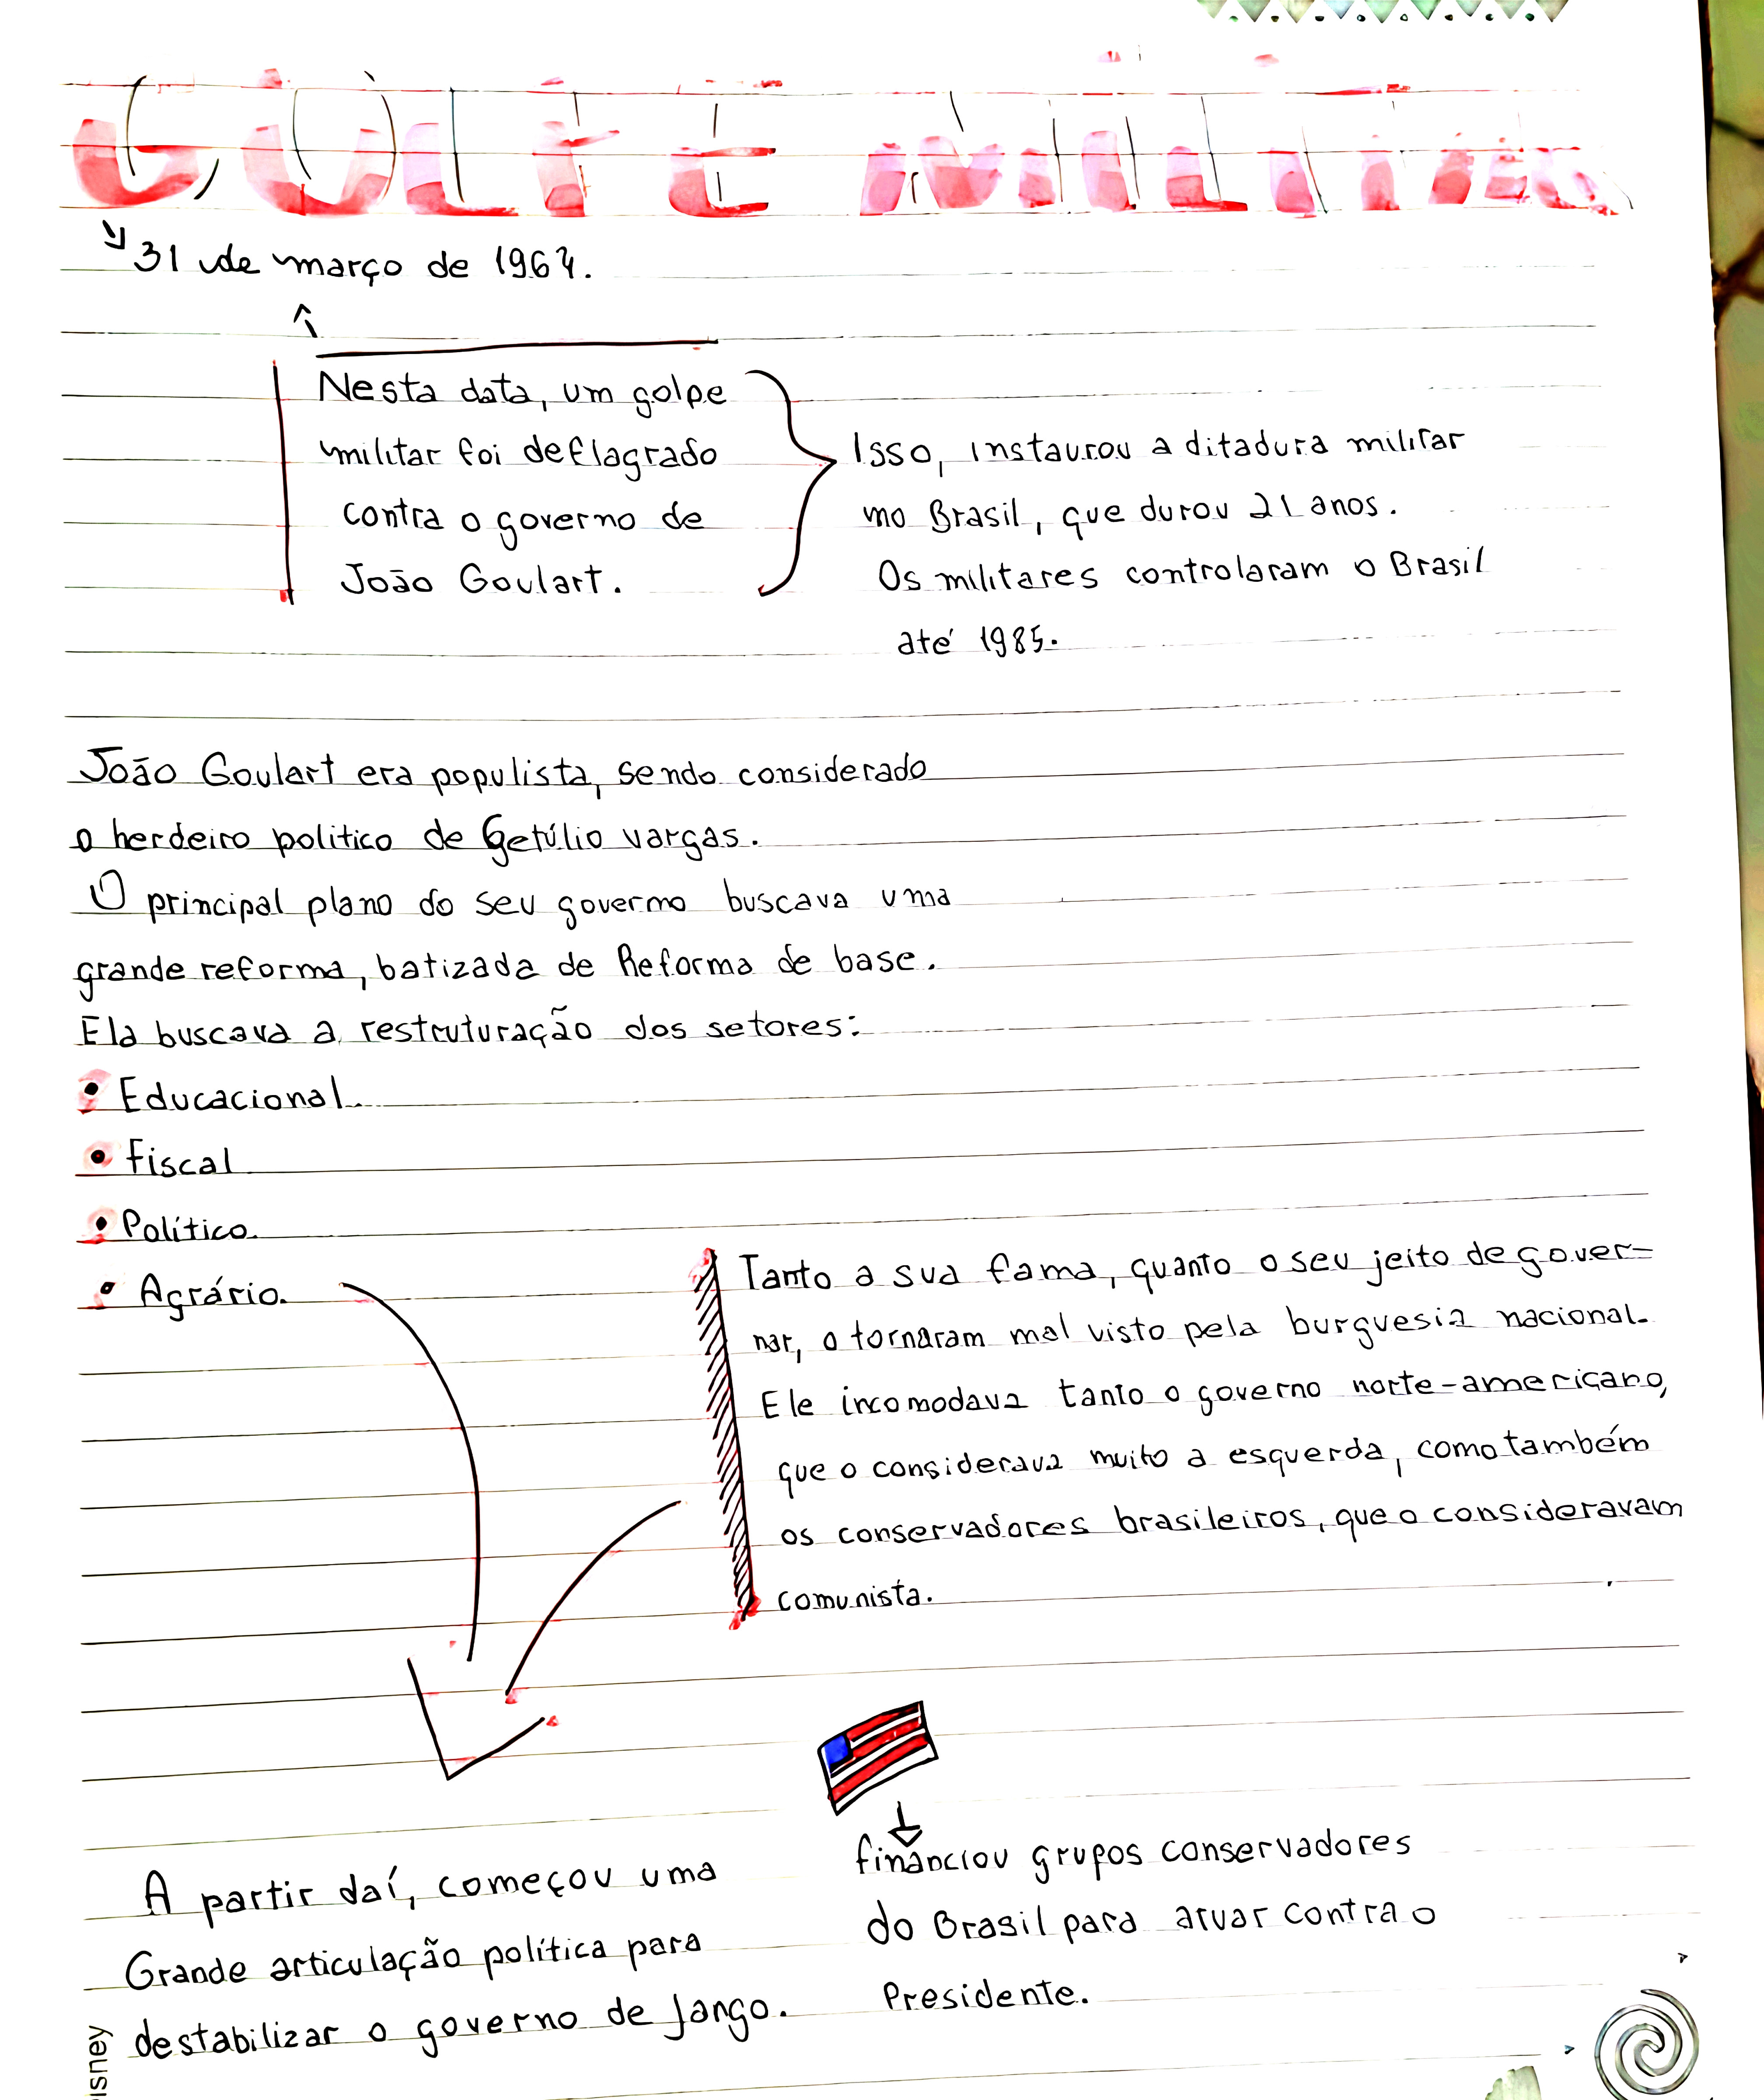 GOLPE MILITAR
31 de março de 1964.
Nesta data, um golpe
militar foi deflagrado
contra o governo de
João Goulart.
Isso, instaurou a ditadura militar
no Brasil, que durou 21 anos.
Os militares controlaram o Brasil
até 1985.
João Goulart era populista, sendo considerado
o herdeiro politico de Getúlio vargas.
O principal plano do seu governo buscava uma
grande reforma, batizada de Reforma de base.
Ela buscava a restruturação dos setores:
• Educacional.
• Fiscal
• Político.
• Agrário.
Tanto a sua fama, quanto o seu jeito de gover-
nar, o tornaram mal visto pela burguesia nacional.
Ele incomodava tanto o governo norte-americano,
que o considerava muito a esquerda, como também
os conservadores brasileiros, que o consideravam
comunista.
A partir daí, começou uma
Grande articulação política para
destabilizar o governo de Jango.
financiou grupos conservadores
do Brasil para atuar contra o
Presidente.
isney